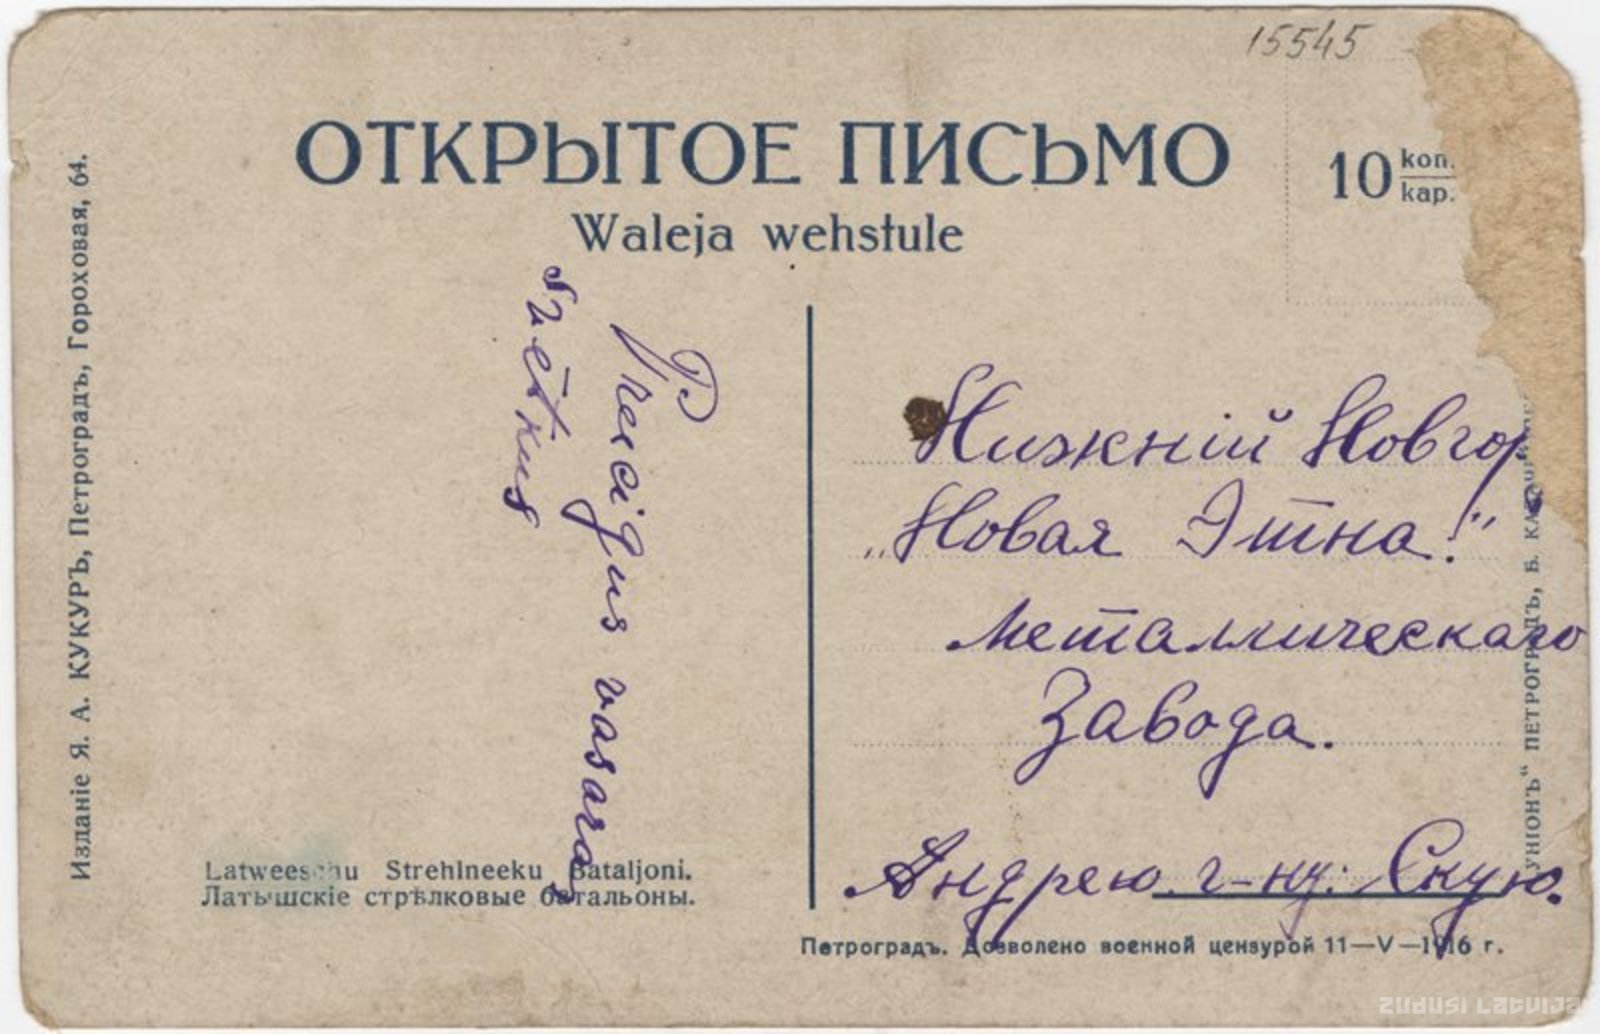 15545
ОТКРЫТОЕ ПИСЬМО
Waleja wehstule
10 коп.
kap.
Изданіе Я. А. КУКУРЪ, Петроградъ, Гороховая, 64.
Preecigus vasaras
svētkus
Нижній Новгор
„Новая Этна!"
Металлическаго
Завода.
Андрею г-ну: Скую.
Latweeschu Strehlneeku Bataljoni.
Латышскіе стрѣлковые батальоны.
Петроградъ. Дозволено военной цензурой 11—V—1916 г.
УНІОНЪ" ПЕТРОГРАДЪ, Б.
ZUDUSI LATVIJA